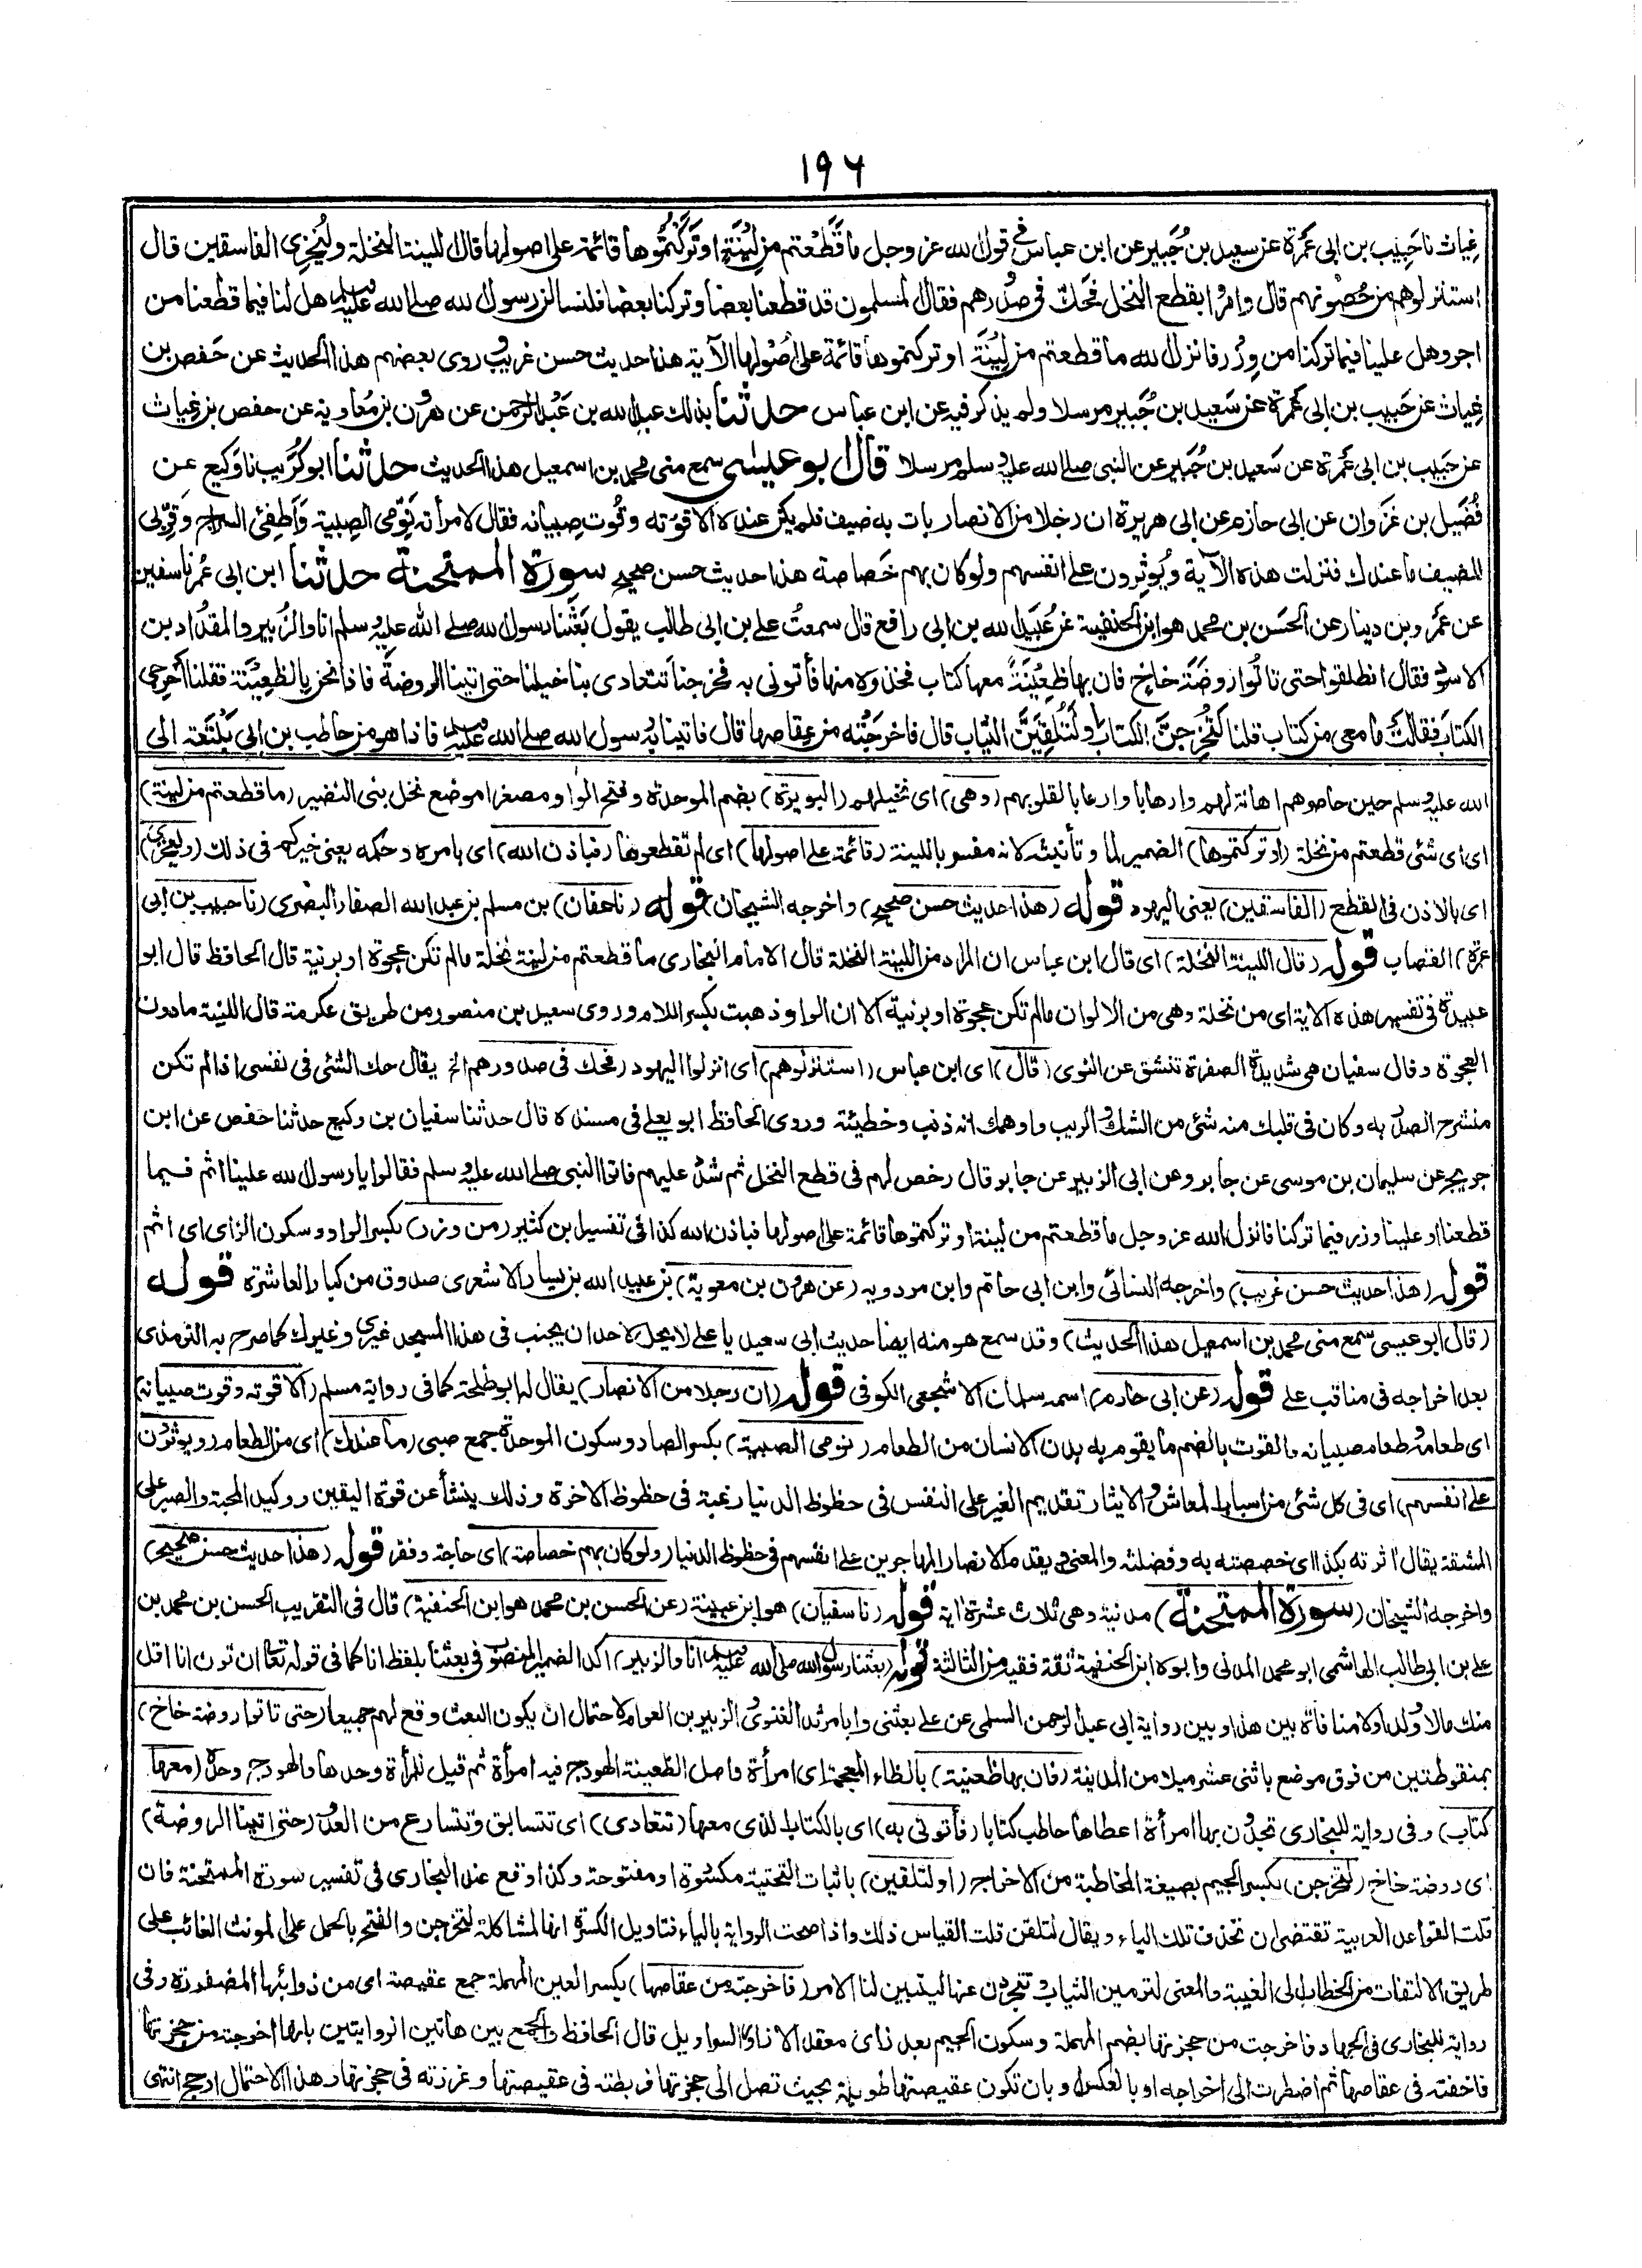 ١٩٦
غياث نا حبيب بن ابى عمرة عن سعيد بن جبير عن ابن عباس فى قول الله عز وجل ما قطعتم من لينة او تركتموها قائمة على اصولها قال اللينة النخلة وليخزى الفاسقين قال
استنزلوهم من حصونهم قال وامروا بقطع النخل فحك فى صدورهم فقال المسلمون قد قطعنا بعضا وتركنا بعضا فلنسألن رسول الله صلى الله عليه وسلم هل لنا فيما قطعنا من
اجر وهل علينا فيما تركنا من وزر فانزل الله ما قطعتم من لينة او تركتموها قائمة على اصولها الآية هذا حديث حسن غريب وروى بعضهم هذا الحديث عن حفص بن
غياث عن حبيب بن ابى عمرة عن سعيد بن جبير مرسلا ولم يذكر فيه عن ابن عباس حدثنا بذلك عبد الله بن عبد الرحمن عن هرون بن معاوية عن حفص بن غياث
عن حبيب بن ابى عمرة عن سعيد بن جبير عن النبى صلى الله عليه وسلم مرسلا قال ابو عيسى سمع منى محمد بن اسمعيل هذا الحديث حدثنا ابو كريب نا وكيع عن
فضيل بن غزوان عن ابى حازم عن ابى هريرة ان رجلا من الانصار بات به ضيف فلم يكن عنده الا قوته وقوت صبيانه فقال لامرأته نومى الصبية واطفئى السراج وقربى
للضيف ما عندك فنزلت هذه الآية ويؤثرون على انفسهم ولو كان بهم خصاصة هذا حديث حسن صحيح سورة الممتحنة حدثنا ابن ابى عمر نا سفين
عن عمرو بن دينار عن الحسن بن محمد هو ابن الحنفية عن عبيد الله بن ابى رافع قال سمعت على بن ابى طالب يقول بعثنا رسول الله صلى الله عليه وسلم انا والزبير والمقداد بن
الاسود فقال انطلقوا حتى تأتوا روضة خاخ فان بها ظعينة معها كتاب فخذوه منها فأتونى به فخرجنا تتعادى بنا خيلنا حتى اتينا الروضة فاذا نحن بالظعينة فقلنا اخرجى
الكتاب فقالت ما معى من كتاب قلنا لتخرجن الكتاب او لتلقين الثياب قال فاخرجته من عقاصها قال فاتينا به رسول الله صلى الله عليه وسلم فاذا هو من حاطب بن ابى بلتعة الى
الله عليه وسلم حين حاصرهم اهانة لهم وارهابا وارعابا لقلوبهم (وهى) اى نخيلهم (البويرة) بضم الموحدة وفتح الواو مصغرا موضع نخل بنى النضير (ما قطعتم من لينة)
اى اى شئ قطعتم من نخلة (او تركتموها) الضمير لما وتأنيثه لانه مفسر باللينة (قائمة على اصولها) اى لم تقطعوها (فباذن الله) اى بامره وحكمه يعنى خيركم فى ذلك (وليخزى)
اى بالاذن فى القطع (الفاسقين) يعنى اليهود قوله (هذا حديث حسن صحيح) واخرجه الشيخان قوله (نا عفان) بن مسلم بن عبد الله الصفار البصرى (نا حبيب بن ابى
عمرة) القصاب قوله (قال اللينة النخلة) اى قال ابن عباس ان المراد من اللينة النخلة قال الامام البخارى ما قطعتم من لينة نخلة مالم تكن عجوة او برنية قال الحافظ قال ابو
عبيدة فى تفسير هذه الاية اى من نخلة وهى من الالوان مالم تكن عجوة او برنية الا ان الواو ذهبت بكسر اللام وروى سعيد بن منصور من طريق عكرمة قال اللينة ما دون
العجوة وقال سفيان هى شديدة الصفرة تنشق عن النوى (قال) اى ابن عباس (استنزلوهم) اى انزلوا اليهود (فحك فى صدورهم) الخ يقال حك الشئ فى نفسى اذا لم تكن
منشرح الصدر به وكان فى قلبك منه شئ من الشك والريب واوهمك انه ذنب وخطيئة وروى الحافظ ابو يعلى فى مسنده قال حدثنا سفيان بن وكيع حدثنا حفص عن ابن
جريج عن سليمان بن موسى عن جابر وعن ابى الزبير عن جابر قال رخص لهم فى قطع النخل ثم شدد عليهم فاتوا النبى صلى الله عليه وسلم فقالوا يا رسول الله علينا اثم فيما
قطعنا او علينا وزر فيما تركنا فانزل الله عز وجل ما قطعتم من لينة او تركتموها قائمة على اصولها فباذن الله كذا فى تفسير ابن كثير (من وزر) بكسر الواو وسكون الزاى اى اثم
قوله (هذا حديث حسن غريب) واخرجه النسائى وابن ابى حاتم وابن مردويه (عن هرون بن معوية) بن عبيد الله بن يسار الاشعرى صدوق من كبار العاشرة قوله
(قال ابو عيسى سمع منى محمد بن اسمعيل هذا الحديث) وقد سمع هو منه ايضا حديث ابى سعيد يا على لا يحل لاحد ان يجنب فى هذا المسجد غيرى وغيرك كما صرح به الترمذى
بعد اخراجه فى مناقب على قوله (عن ابى حازم) اسمه سلمان الاشجعى الكوفى قوله (ان رجلا من الانصار) يقال له ابو طلحة كما فى رواية مسلم (الا قوته وقوت صبيانه)
اى طعامه وطعام صبيانه والقوت بالضم ما يقوم به بدن الانسان من الطعام (نومى الصبية) بكسر الصاد وسكون الموحدة جمع صبى (ما عندك) اى من الطعام (ويؤثرون
على انفسهم) اى فى كل شئ من اسباب المعاش والايثار تقديم الغير على النفس فى حظوظ الدنيا رغبة فى حظوظ الاخرة وذلك ينشأ عن قوة اليقين ووكيد المحبة والصبر على
المشقة يقال اثرته بكذا اى خصصته به وفضلته والمعنى ويقدم الانصار المهاجرين على انفسهم فى حظوظ الدنيا (ولو كان بهم خصاصة) اى حاجة وفقر قوله (هذا حديث حسن صحيح)
واخرجه الشيخان (سورة الممتحنة) مدنية وهى ثلاث عشرة اية قوله (نا سفيان) هو ابن عيينة (عن الحسن بن محمد هو ابن الحنفية) قال فى التقريب الحسن بن محمد بن
على بن ابى طالب الهاشمى ابو محمد المدنى وابوه ابن الحنفية ثقة فقيه من الثالثة قوله (بعثنا رسول الله صلى الله عليه وسلم انا والزبير) اكد الضمير المنصوب فى بعثنا بلفظ انا كما فى قوله تعالى ان ترن انا اقل
منك مالا وولدا ولا منافاة بين هذا وبين رواية ابى عبد الرحمن السلمى عن على بعثنى وابا مرثد الغنوى والزبير بن العوام لاحتمال ان يكون البعث وقع لهم جميعا (حتى تأتوا روضة خاخ)
بمنقوطتين من فوق موضع باثنى عشر ميلا من المدينة (فان بها ظعينة) بالظاء المعجمة اى امرأة واصل الظعينة الهودج فيه امرأة ثم قيل للمرأة وحدها والهودج وحده (معها
كتاب) وفى رواية للبخارى تجدون بها امرأة اعطاها حاطب كتابا (فأتونى به) اى بالكتاب الذى معها (تتعادى) اى تتسابق وتتسارع من العدو (حتى اتينا الروضة)
اى روضة خاخ (لتخرجن) بكسر الجيم بصيغة المخاطبة من الاخراج (او لتلقين) باثبات التحتية مكسورة او مفتوحة وكذا وقع عند البخارى فى تفسير سورة الممتحنة فان
قلت القواعد العربية تقتضى ان تحذف تلك الياء ويقال لتلقن قلت القياس ذلك واذا صحت الرواية بالياء فتاويل الكسرة انها لمشاكلة لتخرجن والفتح بالحمل على المونث الغائب على
طريق الالتفات من الخطاب الى الغيبة والمعنى لترمين الثياب وتتجردن عنها ليتبين لنا الامر (فاخرجته من عقاصها) بكسر العين المهملة جمع عقيصة اى من ذوائبها المضفورة وفى
رواية للبخارى فى الجهاد فاخرجت من حجزتها بضم المهملة وسكون الجيم بعد زاى معقد الازار والسراويل قال الحافظ والجمع بين هاتين الروايتين بانها اخرجته من حجزتها
فاخفته فى عقاصها ثم اضطرت الى اخراجه او بالعكس او بان تكون عقيصتها طويلة بحيث تصل الى حجزتها فربطته فى عقيصتها وغرزته فى حجزتها وهذا الاحتمال ارجح انتهى